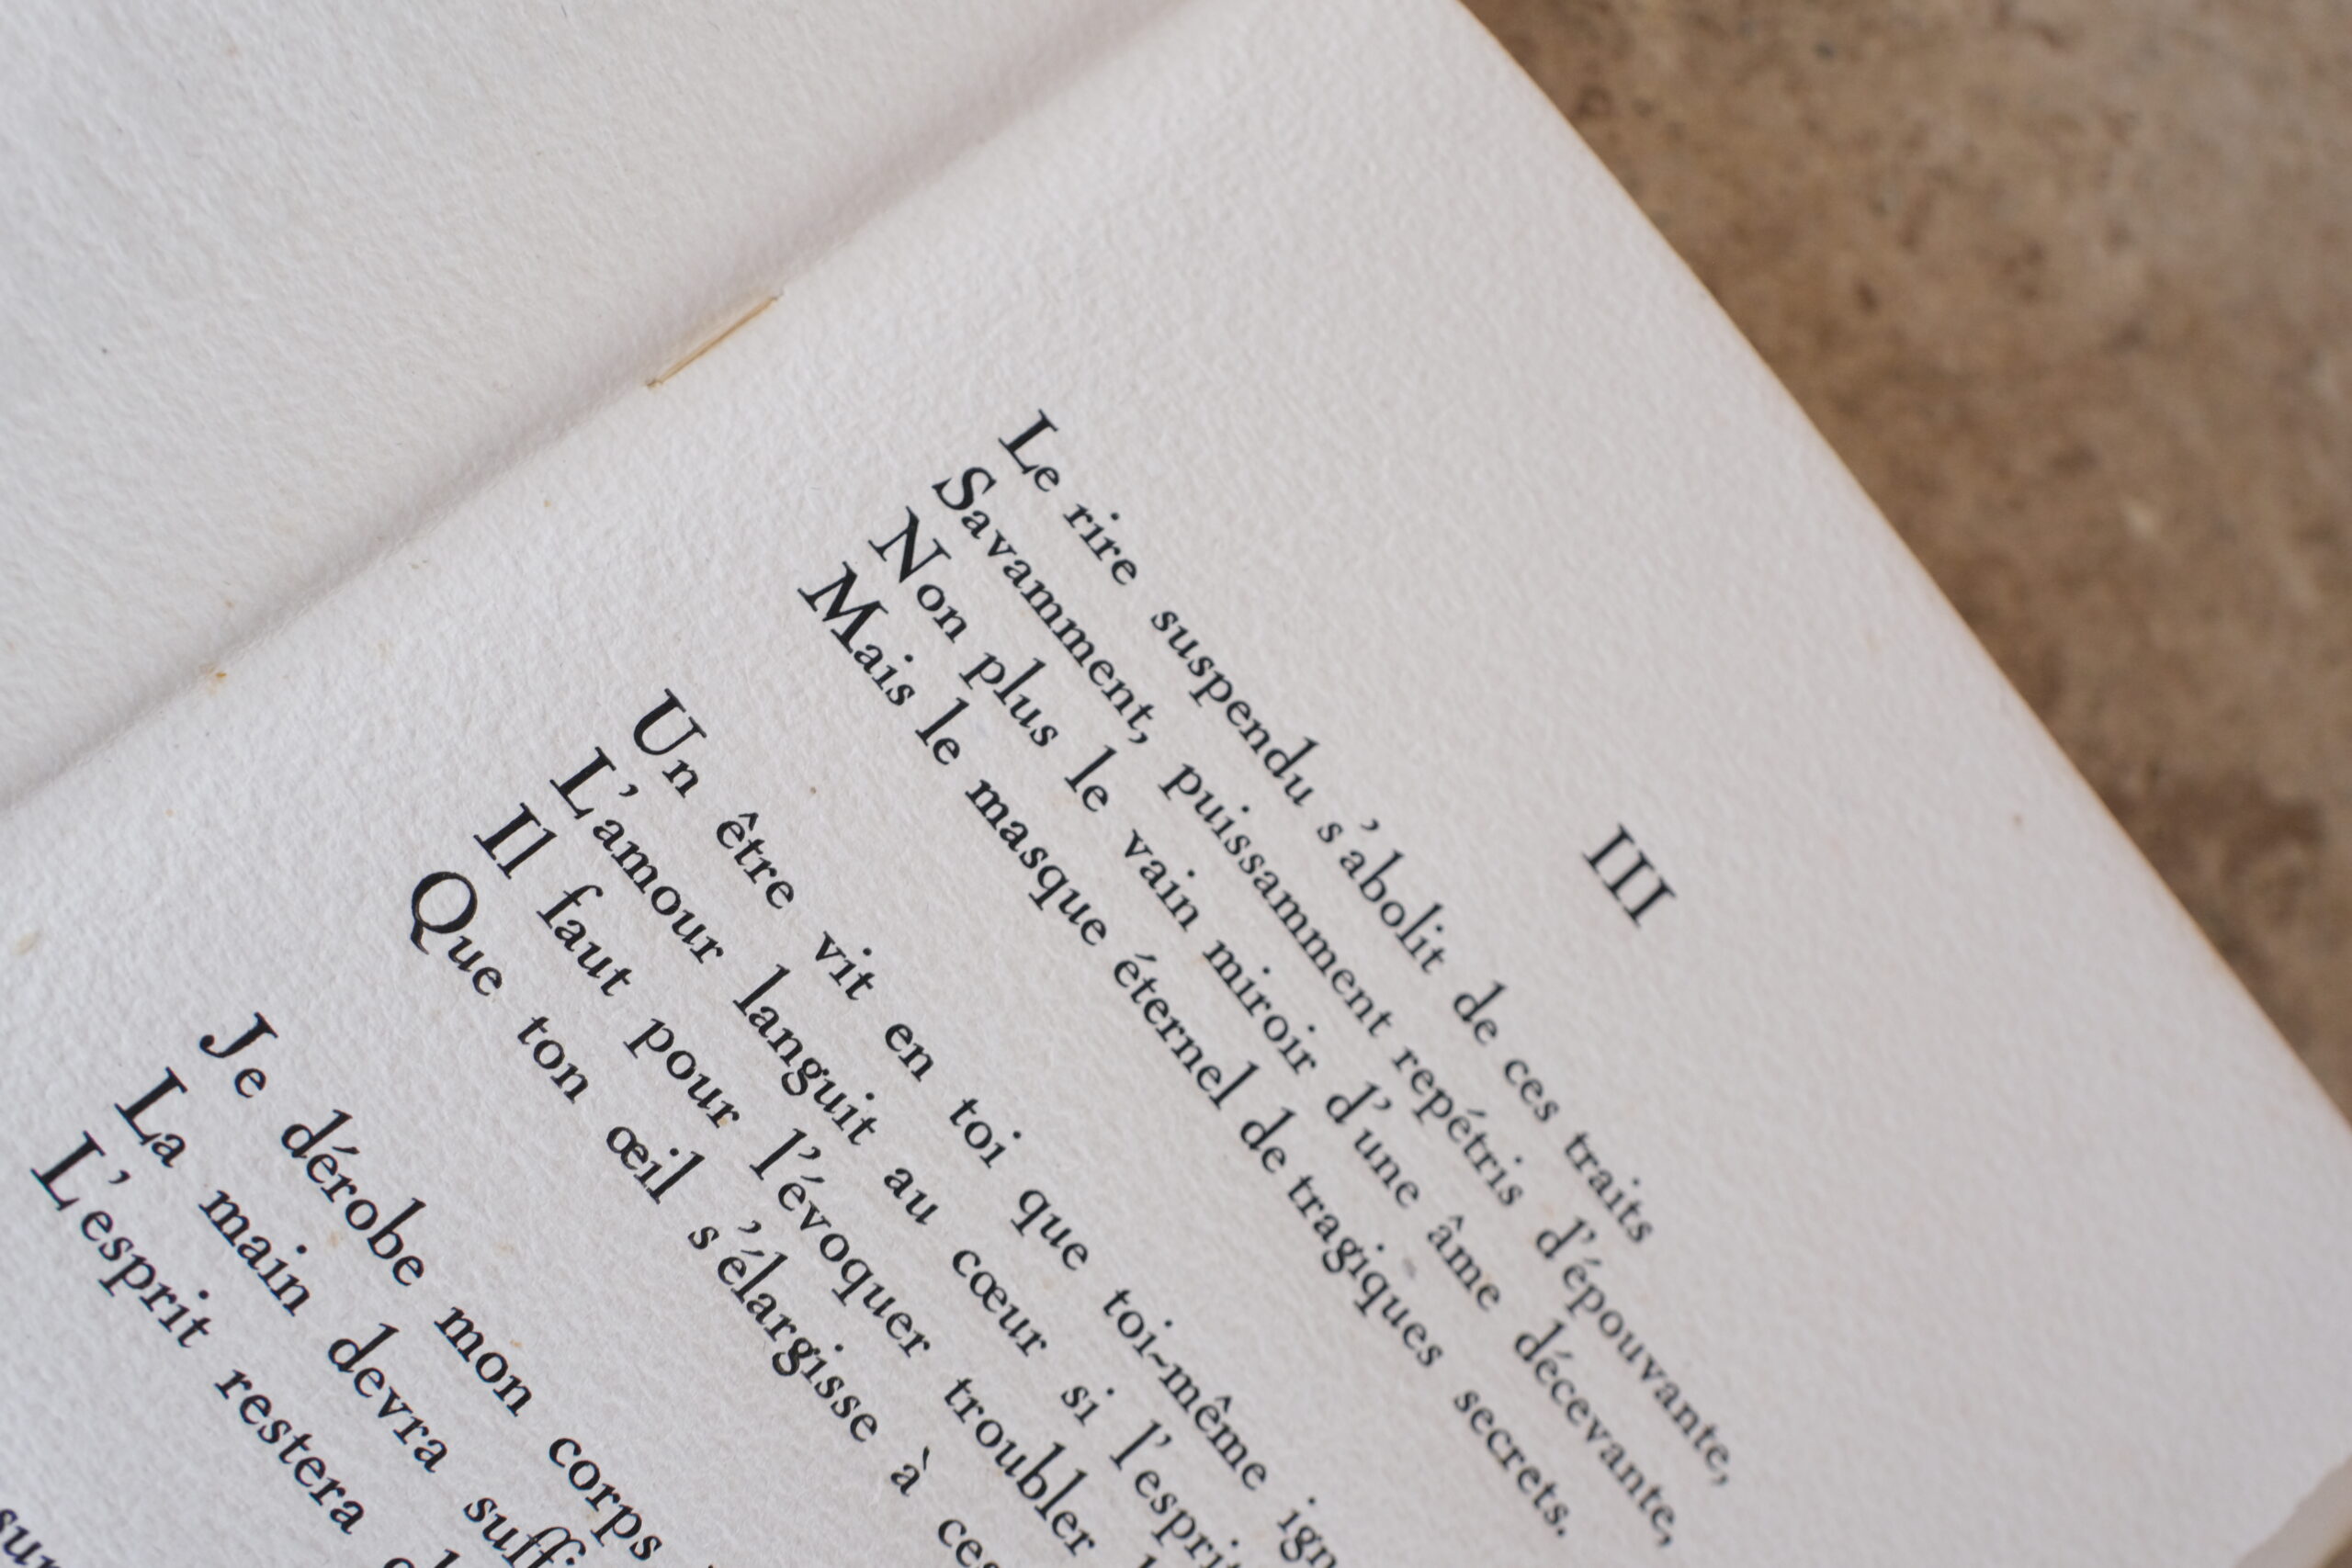 III
Le rire suspendu s'abolit de ces traits
Savamment, puissamment repétris d'épouvante,
Non plus le vain miroir d'une âme décevante,
Mais le masque éternel de tragiques secrets.
Un être vit en toi que toi-même
L'amour languit au cœur si l'esprit
Il faut pour l'évoquer troubler
Que ton œil s'élargisse à
Je dérobe mon corps
La main devra
L'esprit restera